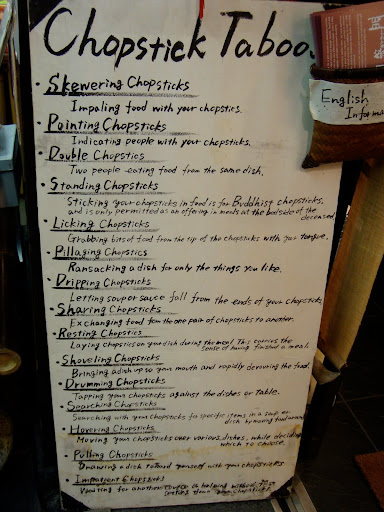 Chopstick Taboos
• Skewering Chopsticks
Impaling food with your chopstics.
• Pointing Chopsticks
Indicating people with your chopsticks.
• Double Chopstics
Two people eating food from the same dish.
• Standing Chopsticks
Sticking your chopsticks in food is for Buddhist chopsticks,
and is only permitted as an offering in meals at the bedside of the deceased
• Licking Chopsticks
Grabbing bits of food from the tip of the chopsticks with your tongue.
• Pillaging Chopstics
Ransacking a dish for only the things you like.
• Dripping Chopsticks
Letting soup or sauce fall from the ends of your chopsticks
• Sharing Chopsticks
Exchanging food from the one pair of chopsticks to another.
• Resting Chopstics
Laying chopstics on your dish during the meal. This carries the
sense of having finished a meal.
• Shoveling Chopsticks
Bringing a dish up to your mouth and rapidly devouring the food.
• Drumming Chopsticks
Tapping your chopsticks against the dishes or table.
• Searching Chopsticks
Searching with your Chopsticks for specific items in a soup or
dish by moving food around
• Hovering Chopsticks
Moving your chopsticks over various dishes, while deciding
which to choose.
• Pulling Chopsticks
Drawing a dish toward yourself with your chopsticks
• Impatient Chopsticks
Waiting for another
English